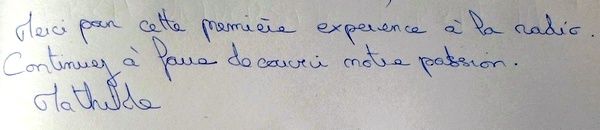 Merci pour cette première experence à la radio.
Continuez à faire decouvrir notre passion.
Mathilde